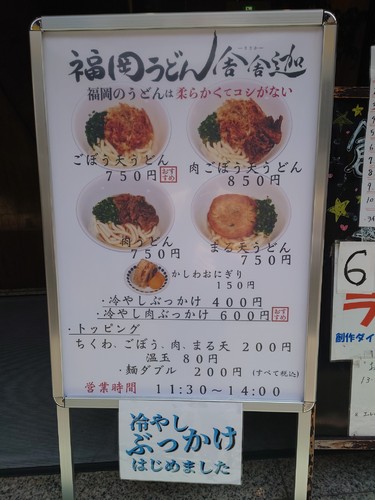 福岡うどん 舎舎迦
福岡のうどんは柔らかくてコシがない
ごぼう天うどん
750円
おすすめ
肉ごぼう天うどん
850円
肉うどん
750円
まる天うどん
750円
かしわおにぎり
150円
・冷やしぶっかけ 400円
・冷やし肉ぶっかけ 600円
おすすめ
・トッピング
ちくわ、ごぼう、肉、まる天 200円
温玉 80円
・麺ダブル 200円 (すべて税込)
営業時間 11:30~14:00
冷やし
ぶっかけ
はじめました
6
創作ダイ